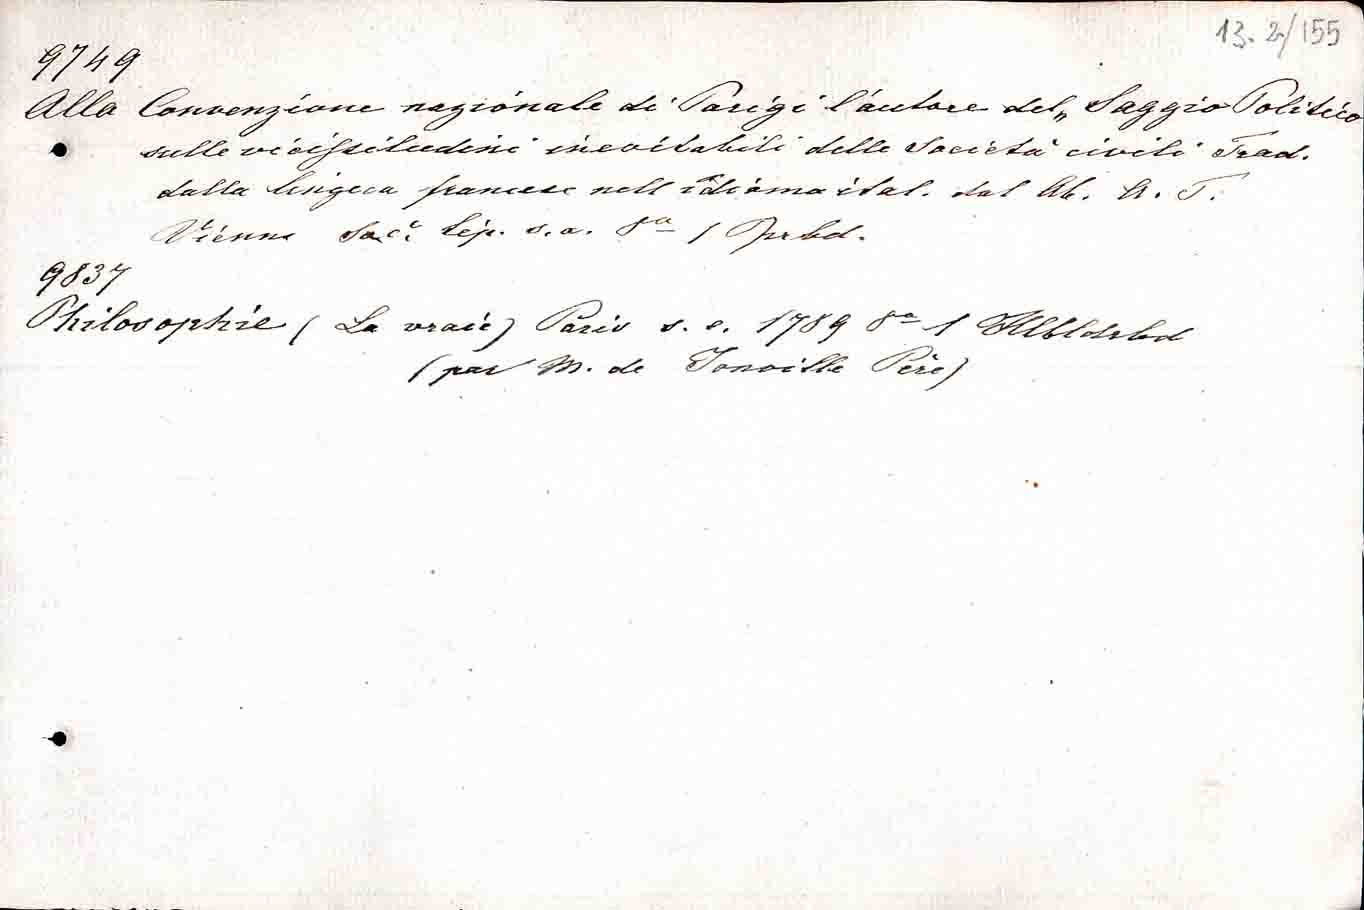 13. 2/155
9749
Alla Convenzione nazionale di Parigi l'autore del „Saggio Politico
sulle vicissitudini inevitabili delle Società civili Trad.
dalla lingua francese nell idioma ital. dal Ab. A. T.
Vienna Soc. tip. s. a. 8º 1 Pprbd.
9837
Philosophie (La vraie) Paris s. e. 1789 8º 1 Hlbldrbd
(par M. de Tonville Père)